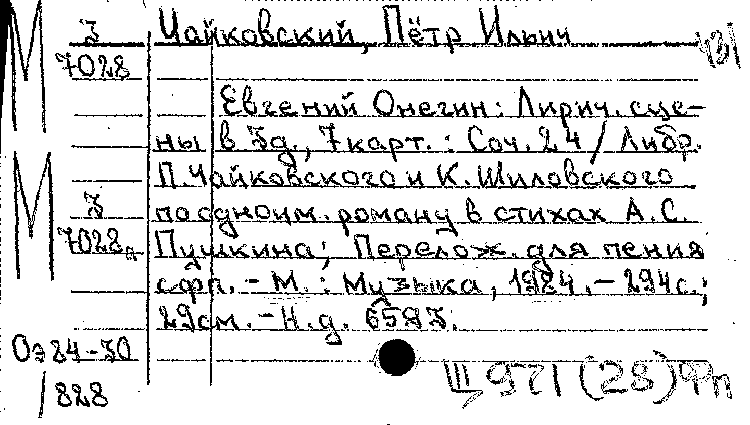 М З Чайковский, Пётр Ильич
7028
Евгений Онегин: Лирич. сце-
ны в 3д., 7 карт.: Соч. 24 / Либр.
П. Чайковского и К. Шиловского
М З по одноим. роману в стихах А.С.
7028д Пушкина; Перелож. для пения
с фп. – М.: Музыка, 1984. – 294с.;
29см. – Н.д. 6593.
Оэ 84-30
/828
Щ 971(28)Фп